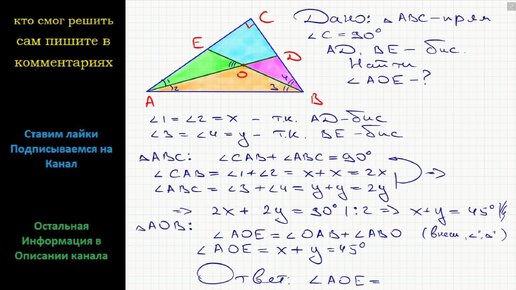 кто смог решить
сам пишите в
комментариях
Ставим лайки
Подписываемся на
Канал
Остальная
Информация в
Описании канала
C
E
D
O
A
B
1
2
3
4
Дано: △ABC-прям
∠C=90°
AD, BE - бис.
Найти
∠AOE-?
∠1=∠2=x - т.к. AD-бис
∠3=∠4=y - т.к. BE-бис
△ABC: ∠CAB+∠ABC=90°
∠CAB=∠1+∠2=x+x=2x
∠ABC=∠3+∠4=y+y=2y
=> 2x+2y=90° |:2 => x+y=45°
△AOB: ∠AOE=∠OAB+∠ABO (внешн. ∠ △)
∠AOE=x+y=45°
Ответ: ∠AOE=